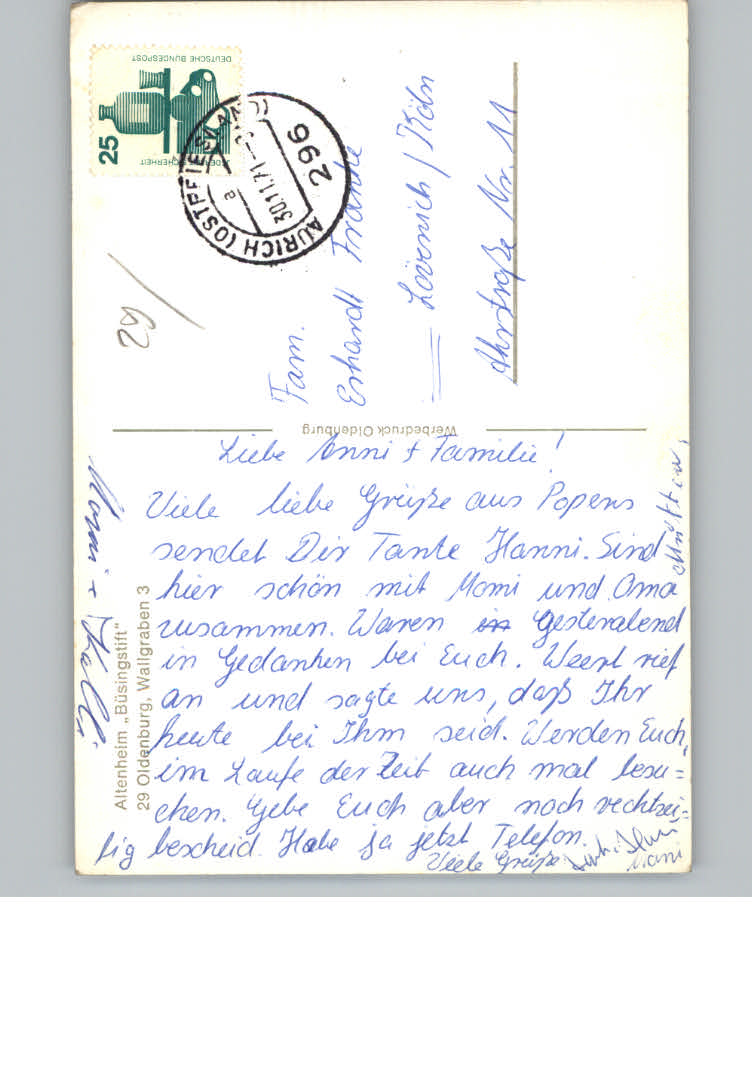 DEUTSCHE BUNDESPOST
25
JEDERZEIT SICHERHEIT
AURICH (OSTFRIESLAND)
30.11.71
a
296
29
Fam.
Erhardt Franke
Lövenich / Köln
Ahrstraße Nr. 11
Werbedruck Oldenburg
Altenheim „Büsingstift"
29 Oldenburg, Wallgraben 3
Liebe Anni + Familie!
Viele liebe Grüße aus Popens
sendet Dir Tante Hanni. Sind
hier schön mit Momi und Oma
zusammen. Waren in Gesternabend
in Gedanken bei Euch. Weert rief
an und sagte uns, daß Ihr
heute bei Ihm seid. Werden Euch,
im Laufe der Zeit auch mal besu=
chen. Gebe Euch aber noch rechtzei=
tig bescheid. Habe ja jetzt Telefon.
Viele Grüße